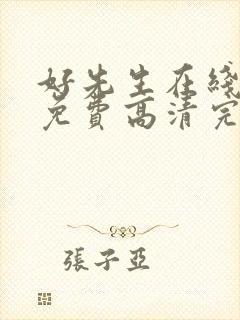 好先生在綫
免費高清完
張子亞